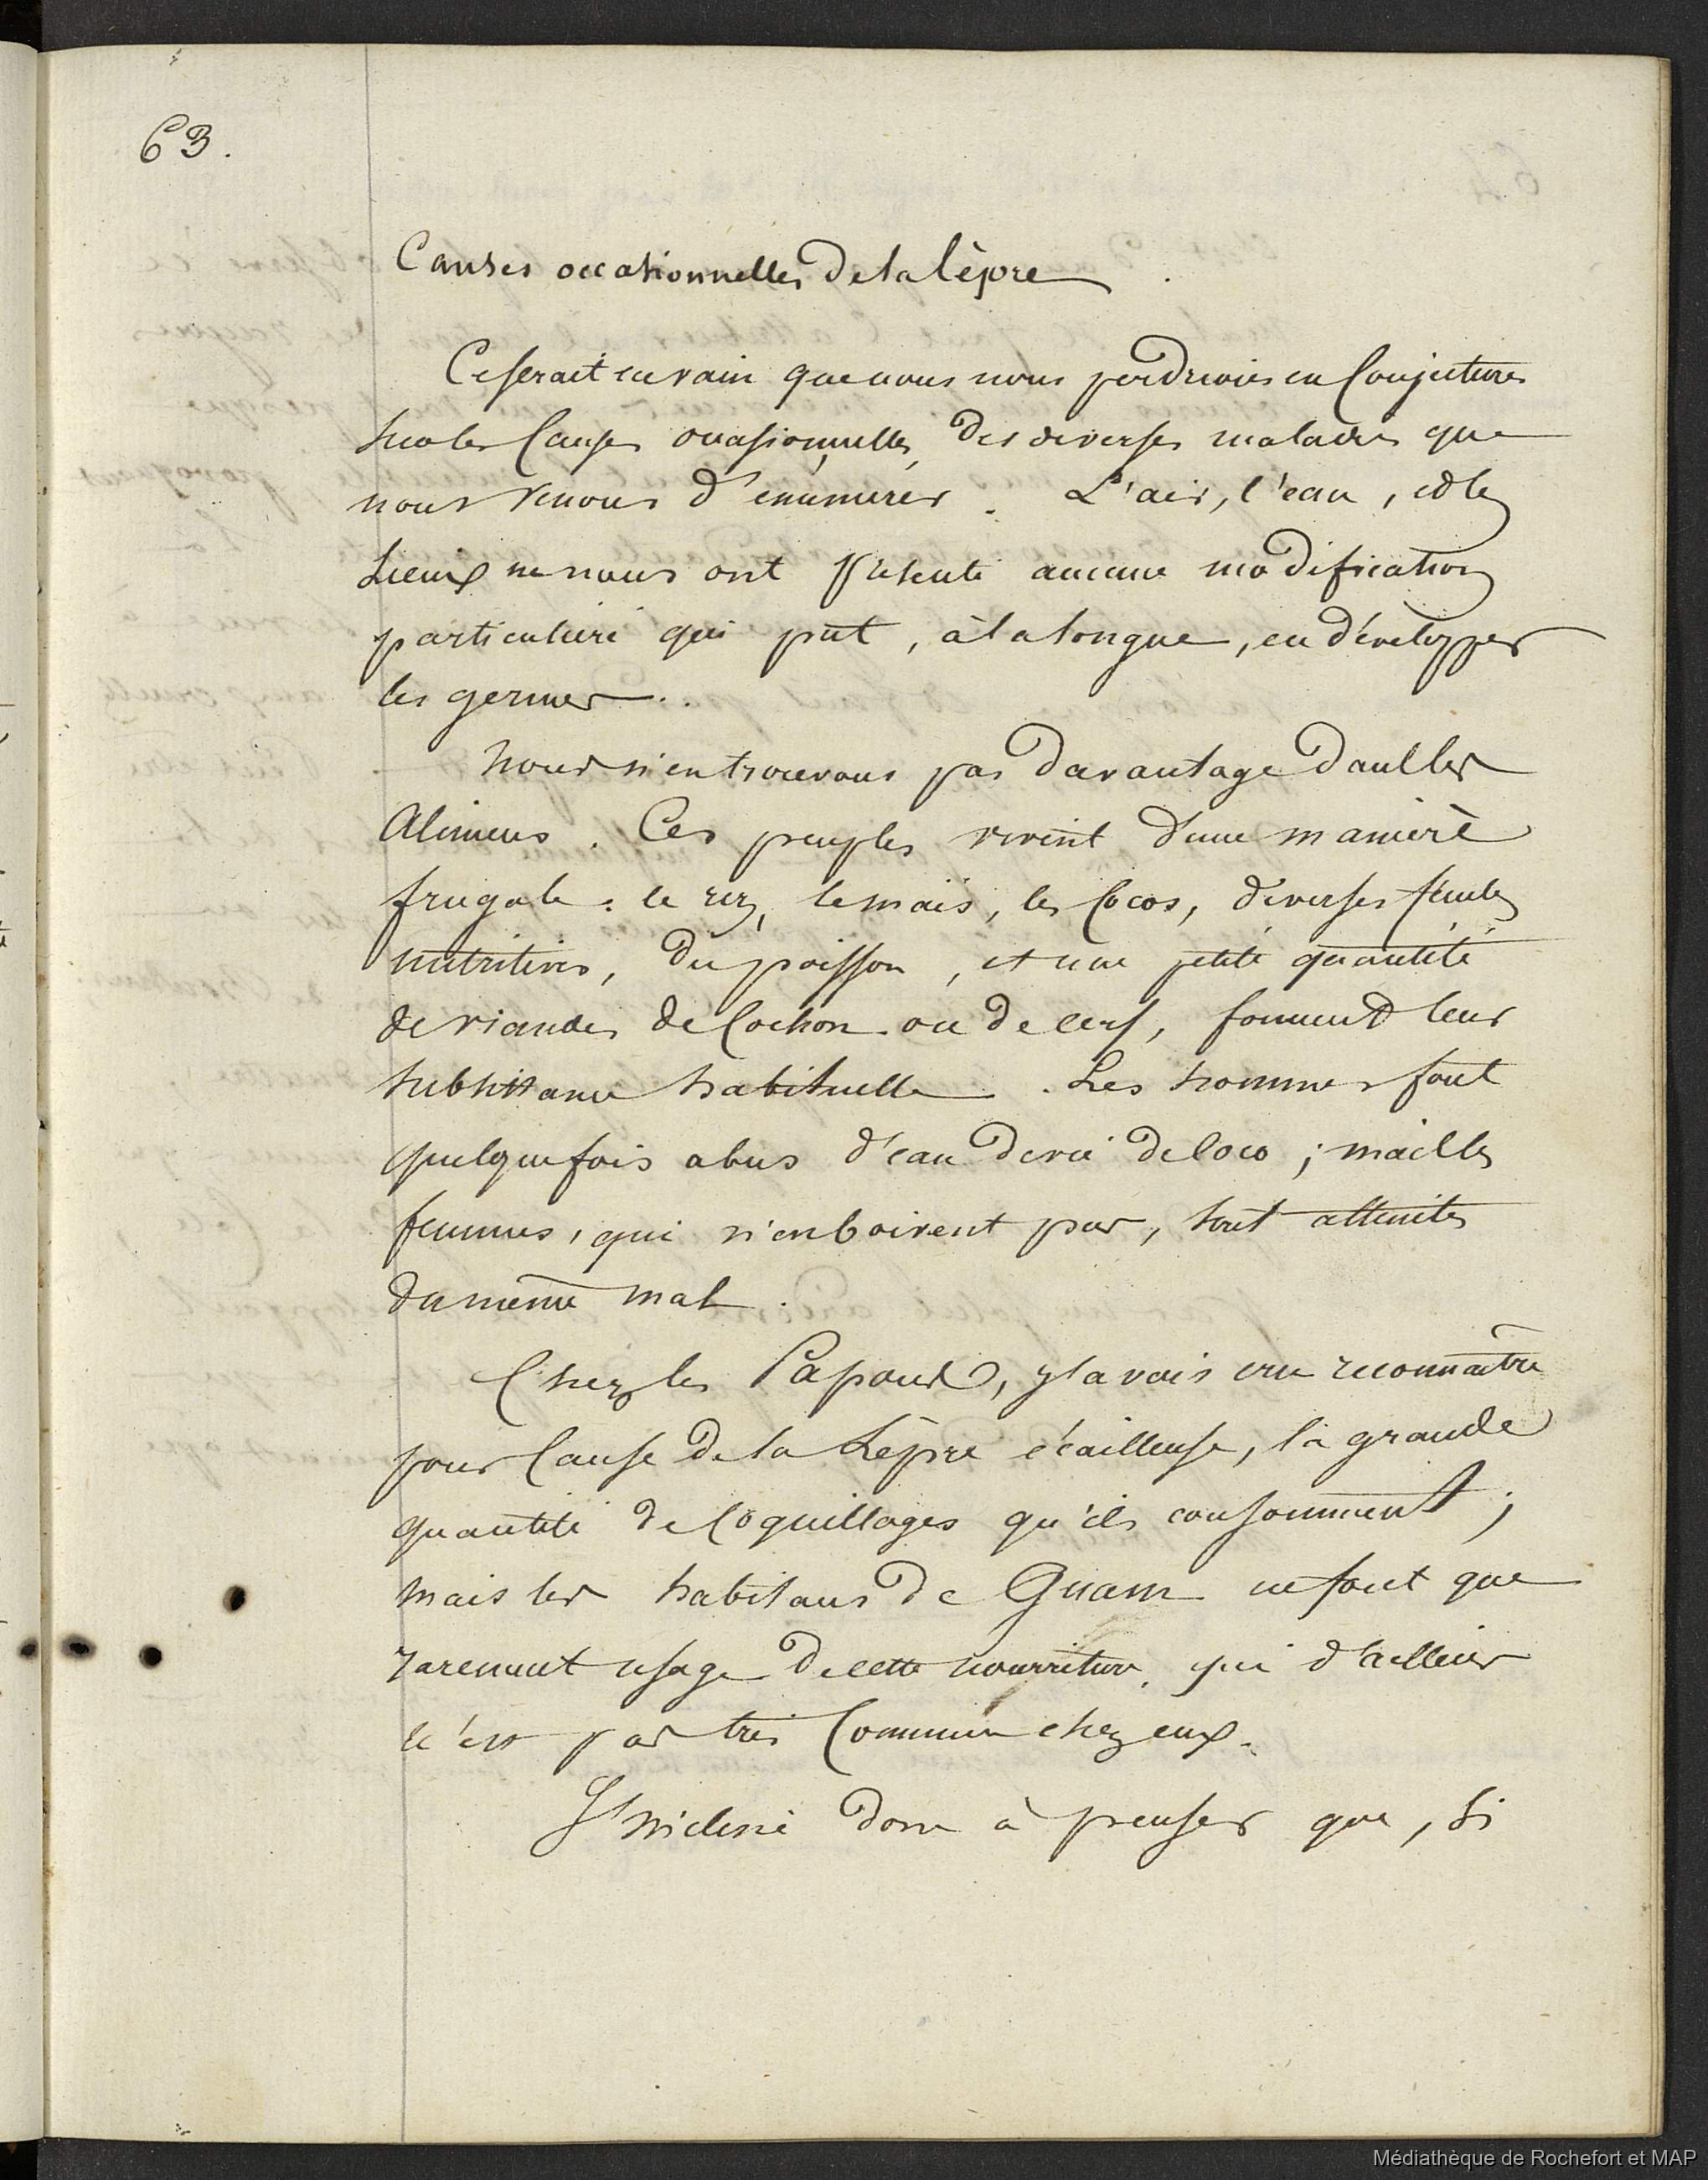 63.
Causes occasionnelles de la lèpre.
Ce serait en vain que nous nous perdrions en Conjectures
sur les Causes occasionnelles, des diverses maladies que
nous venons d'énumérer. L'air, l'eau, et les
Lieux ne nous ont présenté aucune modification
particulière qui put, à la longue, en développer
les germes.
Nous n'en trouvons pas davantage dans les
Alimens. Ces peuples vivent d'une manière
frugale : le riz, le maïs, les Cocos, diverses
nutritives, du poisson, et une petite quantité
de viandes de Cochon ou de cerf, forment leur
subsistance habituelle. Les hommes font
quelquefois abus d'eau de vie de Coco ; mais les
femmes, qui n'en boivent pas, sont atteintes
du même mal.
Chez les Papous, j'avais cru reconnaître
pour Cause de la Lèpre écailleuse, la grande
quantité de Coquillages qu'ils consomment ;
mais les habitans de Guam ne font que
rarement usage de cette nourriture, qui d'ailleurs
n'est pas très Commune chez eux.
J'incline donc à penser que, si
Médiathèque de Rochefort et MAP